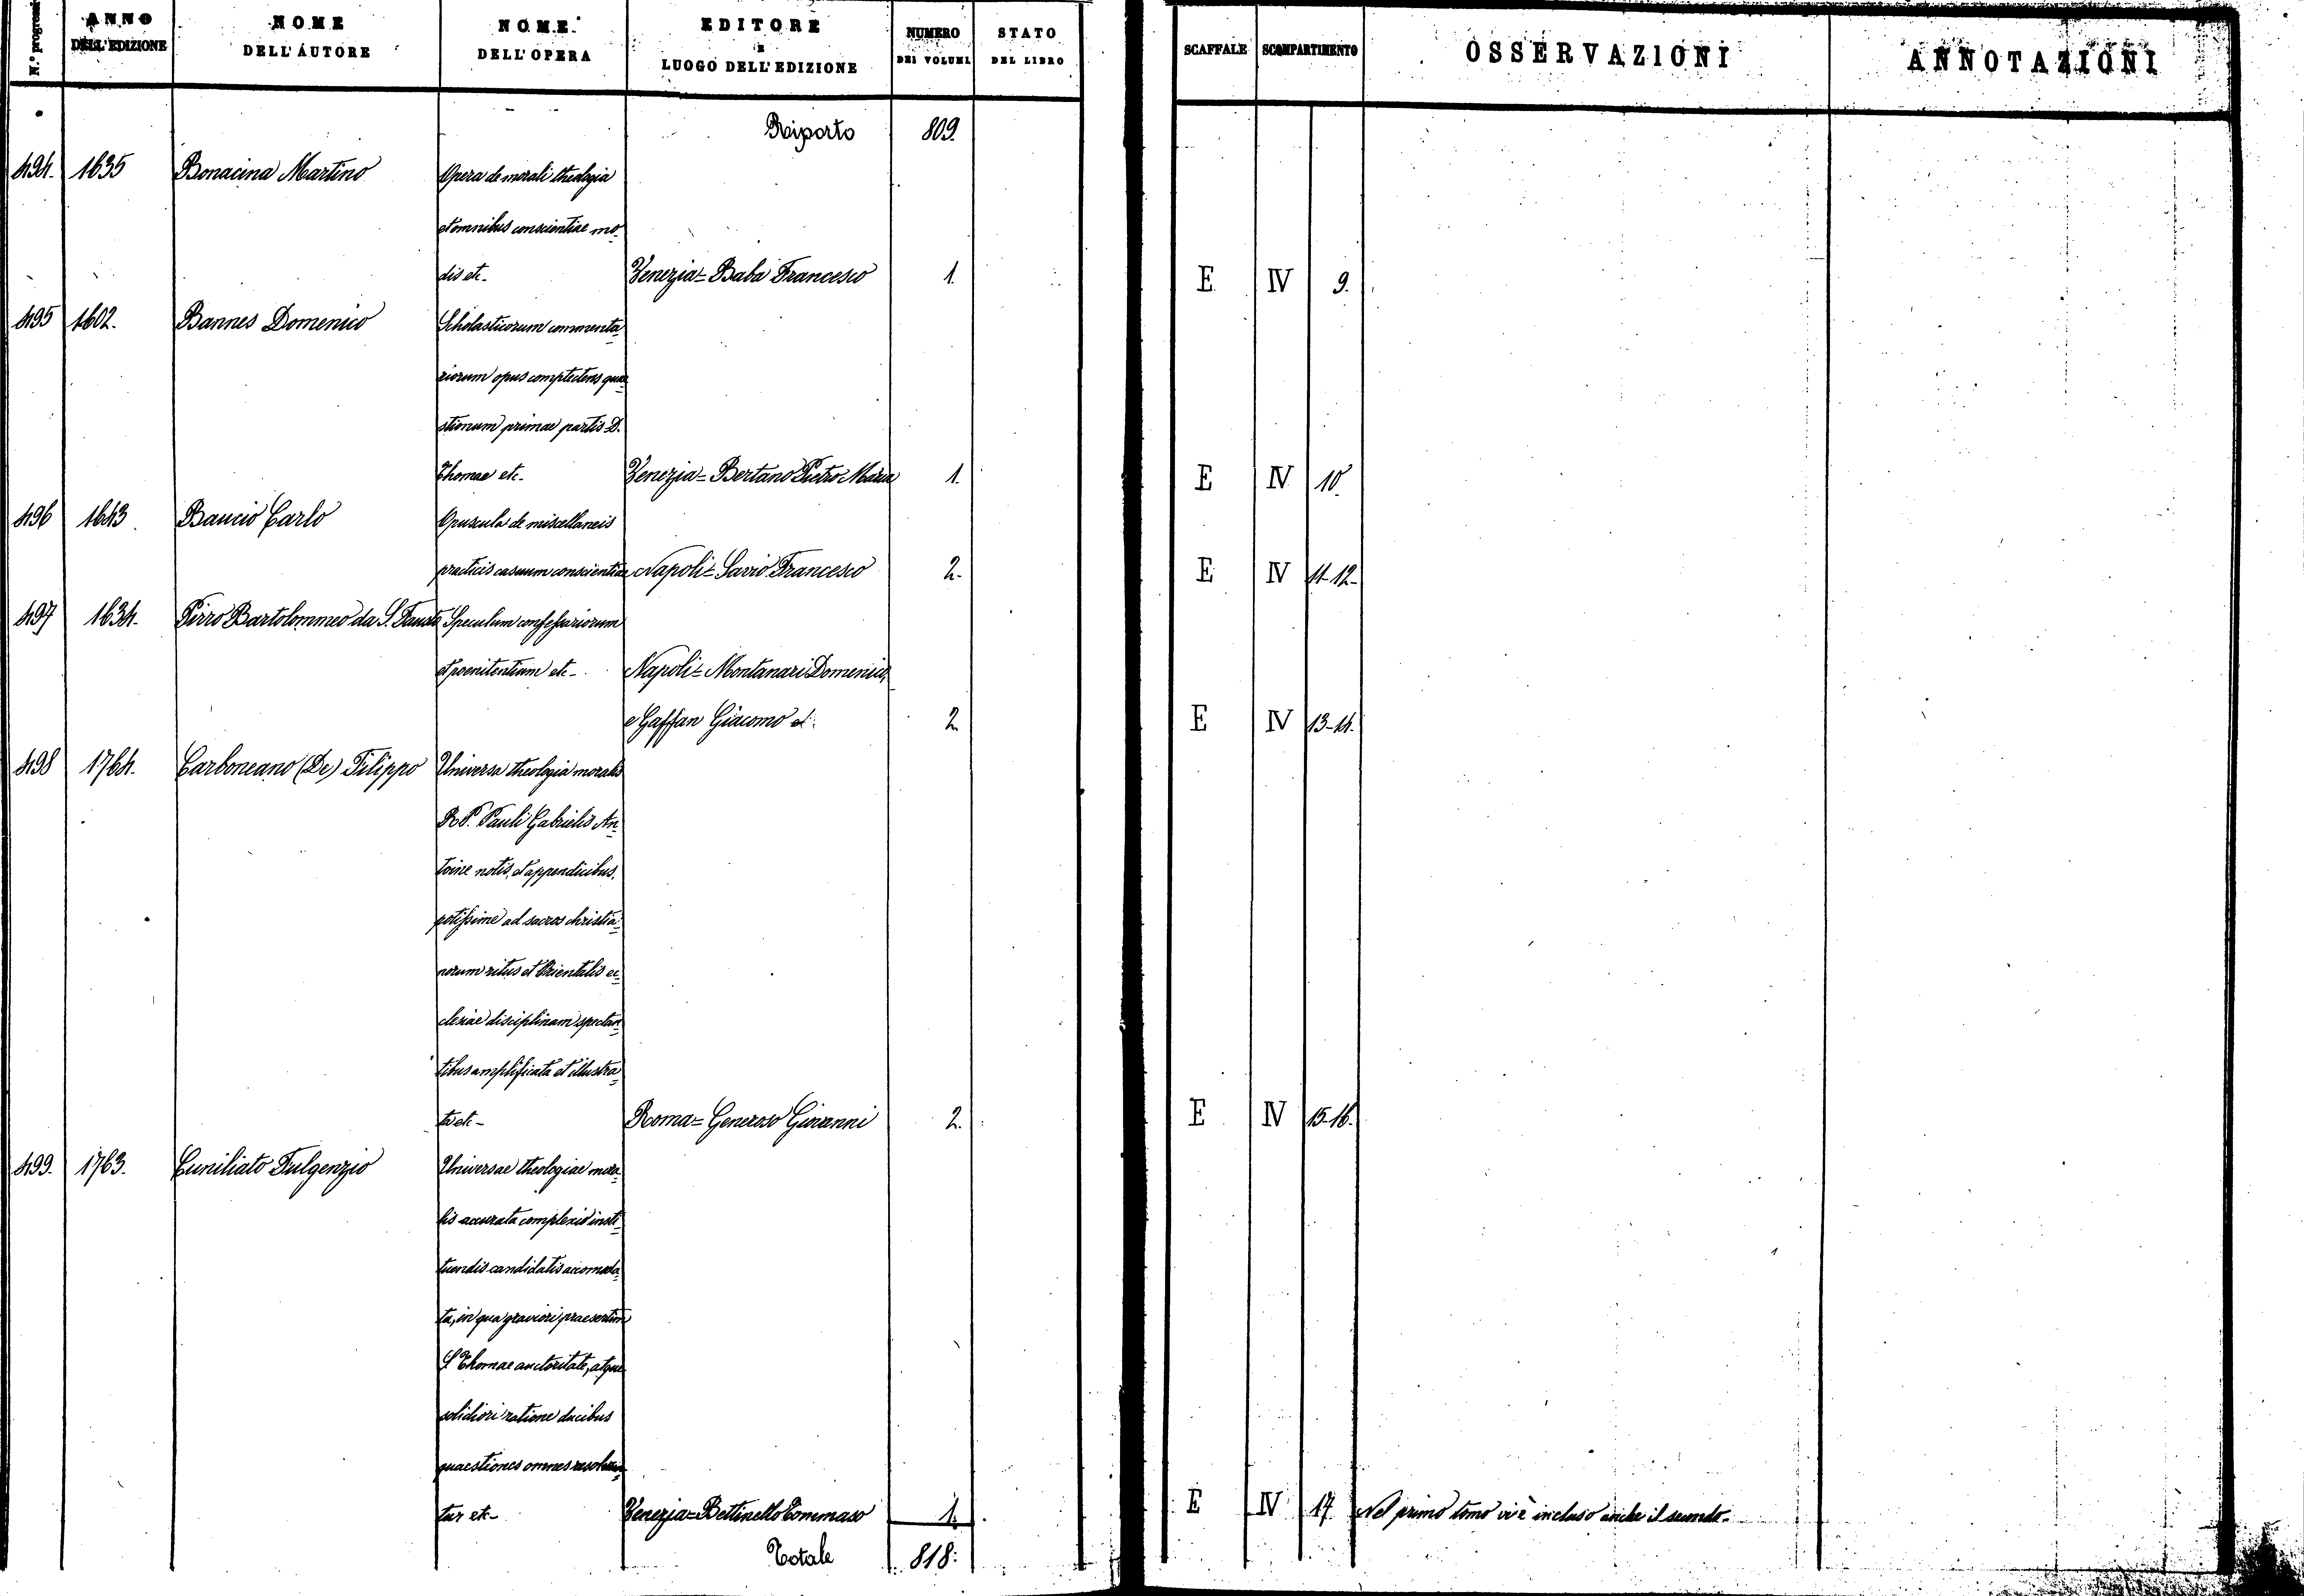 N.° progressi ANNO DELL'EDIZIONE NOME DELL'AUTORE NOME DELL'OPERA EDITORE E LUOGO DELL'EDIZIONE NUMERO DEI VOLUMI STATO DEL LIBRO SCAFFALE SCOMPARTIMENTO OSSERVAZIONI ANNOTAZIONI
Riporto 809.
494. 1635 Bonacina Martino Opera de morali theologia
et omnibus conscientiae mo-
dis etc. Venezia = Baba Francesco 1. E IV 9.
495 1602. Bannes Domenico Scholasticorum commenta-
riorum opus complectens quae-
stionum primae partis D.
Thomae etc. Venezia = Bertano Pietro Maria 1. E IV 10.
496 1643 Baucio Carlo Opuscula de miscellaneis
practicis casuum conscientiae Napoli = Savio Francesco 2. E IV 11-12.
497 1634. Pirro Bartolommeo da S. Fausto Speculum confessariorum
et poenitentium etc. Napoli = Montanari Domenico,
e Gaffan Giacomo et. 2. E IV 13-14.
498 1764. Carboneano (De) Filippo Universa theologia moralis
R. P. Pauli Gabrielis An-
toine notis, et appendicibus,
potissime ad sacros christia-
norum ritus et Orientalis ec-
clesiae disciplinam spectan-
tibus amplificata et illustra-
ta etc. Roma = Generoso Giovanni 2. E IV 15-16.
499. 1763. Cuniliato Fulgenzio Universae theologiae mora-
lis accurata complexio insti-
tuendis candidatis accomoda-
ta, in qua graviori praesertim
S. Thomae auctoritate, atque
solidiori ratione ducibus
quaestiones omnes resolvun-
tur etc. Venezia = Bettinello Tommaso 1. E IV 17 Nel primo tomo vi è incluso anche il secondo.
Totale 818.